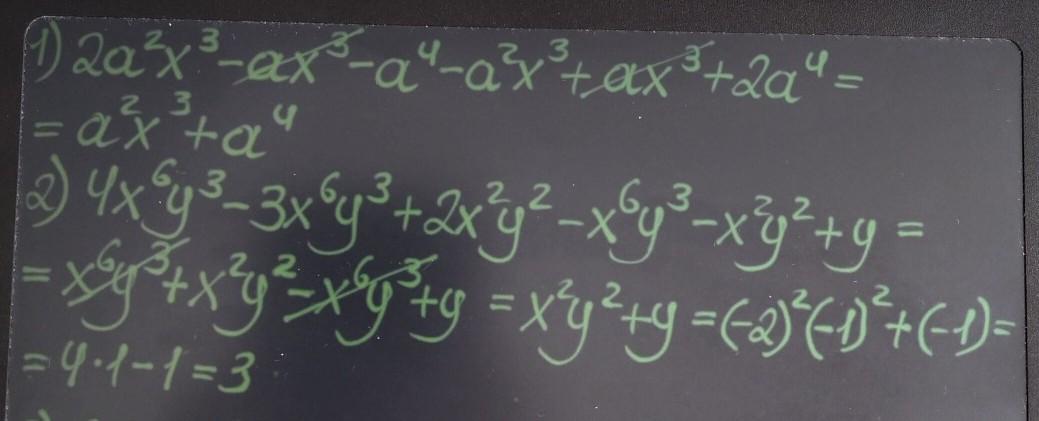 1) 2a²x³-ax³-a⁴-a²x³+ax³+2a⁴=
=a²x³+a⁴
2) 4x⁶y³-3x⁶y³+2x²y²-x⁶y³-x²y²+y=
=x⁶y³+x²y²-x⁶y³+y=x²y²+y=(-2)²(-1)²+(-1)=
=4·1-1=3